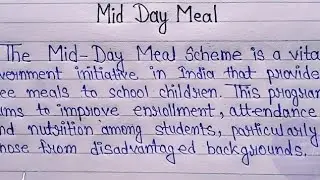 Mid Day Meal
The Mid-Day Meal Scheme is a vita
vernment initiative in India that provide
ee meals to school children. This program
ims to improve enrollment, attendance
nd nutrition among students, particularly
hose from disadvantaged backgrounds.